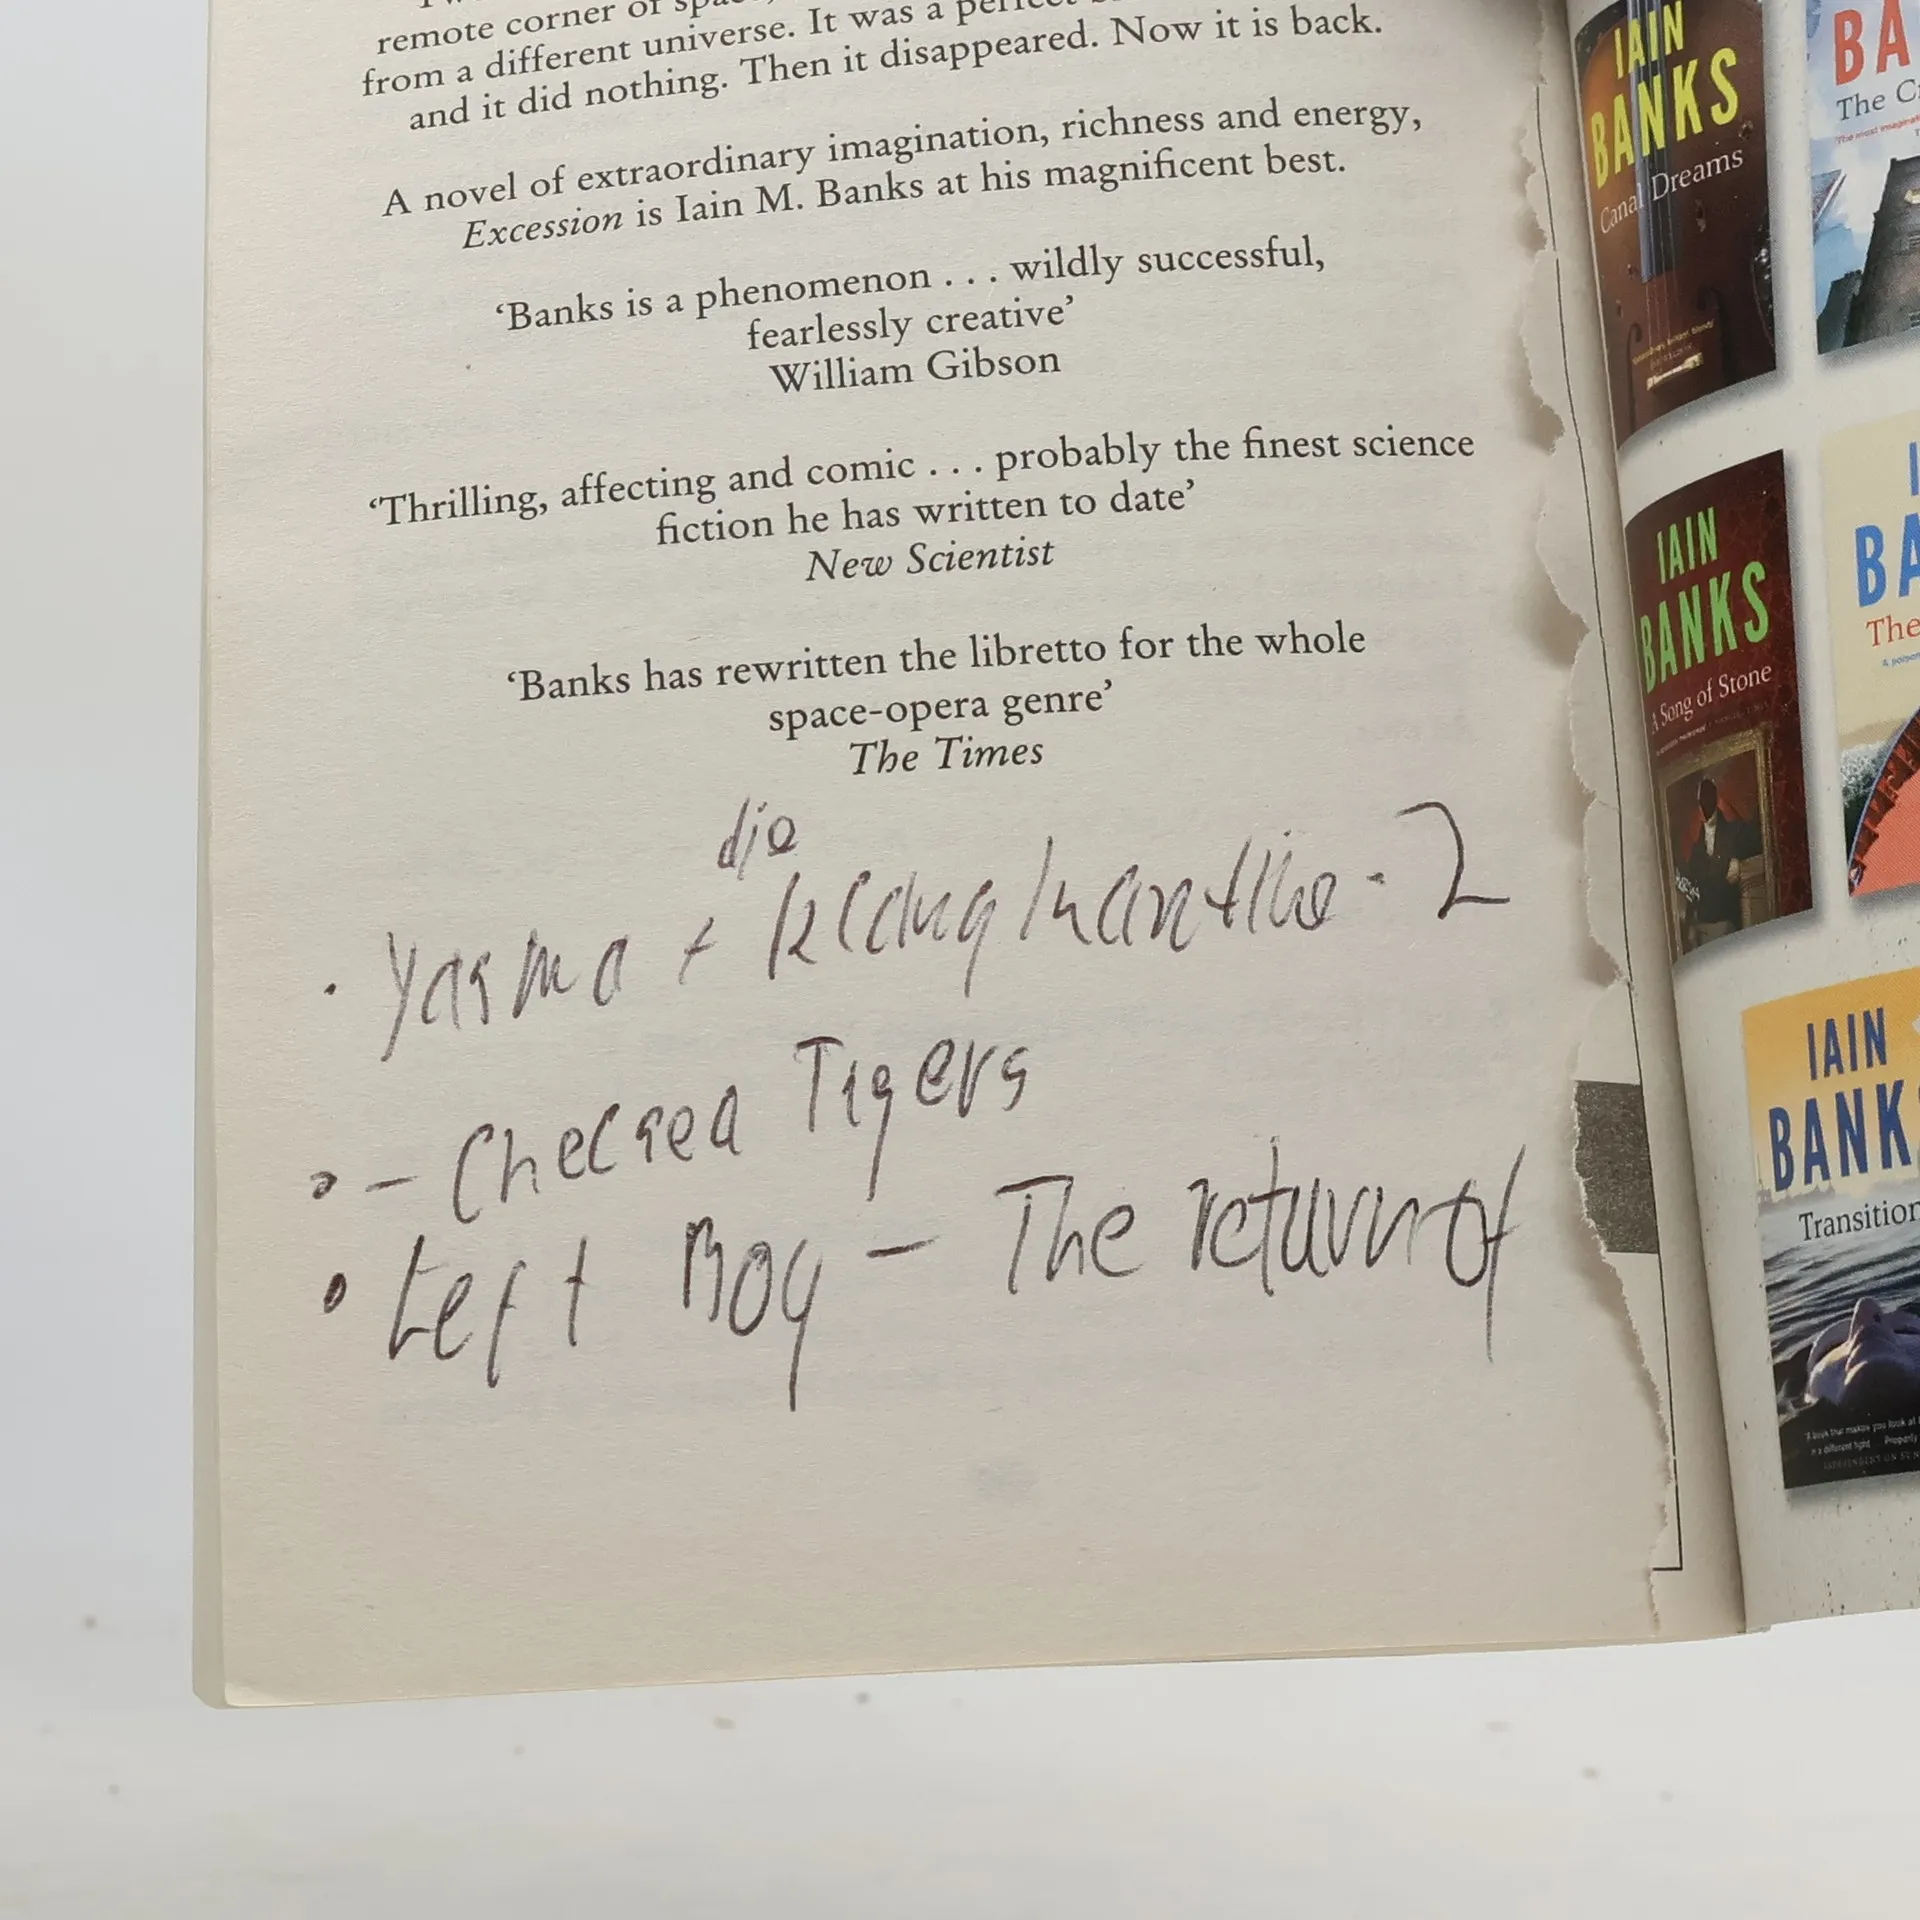 remote corner of
from a different universe. It was a
and it did nothing. Then it disappeared. Now it is back.
A novel of extraordinary imagination, richness and energy,
Excession is Iain M. Banks at his magnificent best.
‘Banks is a phenomenon . . . wildly successful,
fearlessly creative’
William Gibson
‘Thrilling, affecting and comic . . . probably the finest science
fiction he has written to date’
New Scientist
‘Banks has rewritten the libretto for the whole
space-opera genre’
The Times
die
· Yasmo + Klang - 2
• - Chelsea Tigers
• Left Boy - The return of
IAIN
BANKS
Canal Dreams
BA
The
IAIN
BANKS
A Song of Stone
BA
The
IAIN
BANKS
Transition